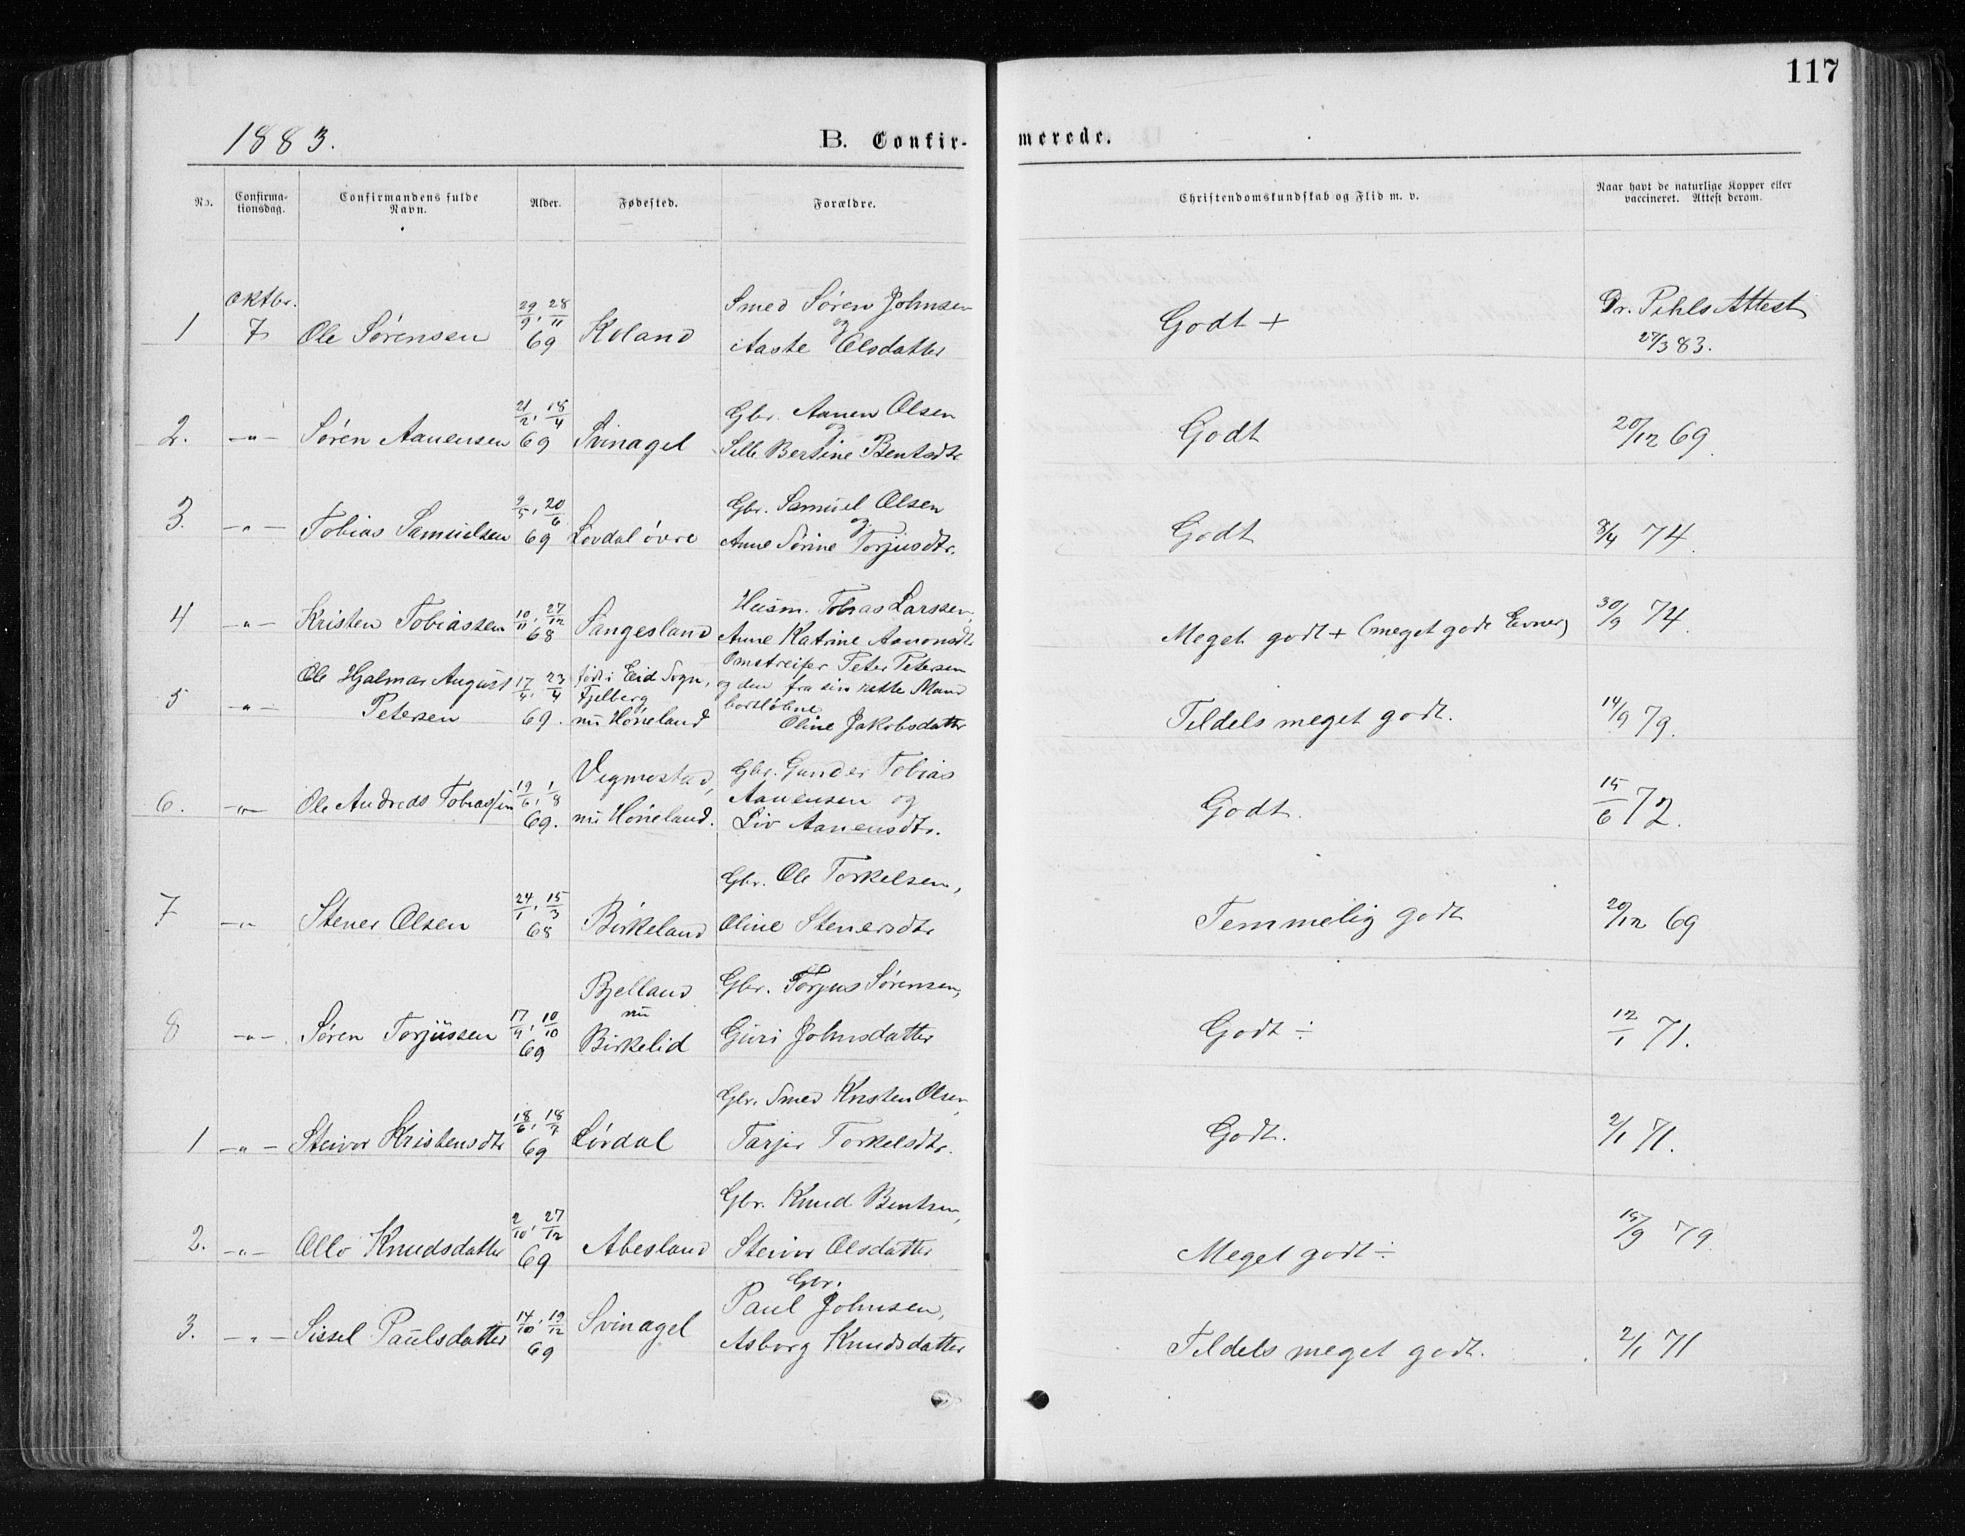 117
1883.
B. Confirmerede.
No. Confirmationsdag. Confirmandens fulde Navn. Alder. Fødested. Forældre. Christendomskundskab og Flid m. v. Naar havt de naturlige Kopper eller vaccineret. Attest derom.
Oktbr.
1 7 Ole Sørensen 29/9, 28/11 69 Koland Smed Søren Johnsen og Aaste Olsdatter Godt + Dr. Pihls Attest 27/3 83.
2. -"- Søren Aanensen 21/2, 18/4 69 Svinagel Gbr. Aanen Olsen og Sille Bertine Bentsdtr Godt 20/12 69.
3. -"- Tobias Samuelsen 9/5, 20/6 69 Lovdal øvre Gbr. Samuel Olsen og Anne Sørine Torjusdtr. Godt 8/4 74.
4 -"- Kristen Tobiassen 10/11, 27/12 68 Sangesland Husm. Tobias Larssen, Anne Katrine Aanonsdtr Meget godt + (meget gode Evner) 30/9 74.
5 -"- Ole Hjalmar August Petersen 17/4, 23/4 69. født i Eid Sogn, Fjelberg, nu Høneland Omstreifer Peter Petersen og den fra sin rette Mand bortløbne Oline Jakobsdatter Tildels meget godt. 14/9 79.
6. -"- Ole Andreas Tobiassen 19/6, 1/8 69. Vegmostad, nu Høneland. Gbr. Gunder Tobias Aanensen og Liv Aanensdtr. Godt. 15/6 72.
7 -"- Stener Olsen 24/1, 15/3 68 Birkeland Gbr. Ole Torkelsen, Oline Stenersdtr Temmelig godt 20/12 69
8 -"- Søren Torjussen 17/9, 10/10 69 Bjelland nu Birkelid Gbr. Torjus Sørensen, Guri Johnsdatter Godt ÷ 12/1 71.
1 -"- Steivor Kristensdtr 18/6, 18/7 69 Lørdal Gbr. Smed Kristen Olsen, Tarjer Torkelsdtr. Godt. 2/1 71.
2. -"- Ollo Knudsdatter 2/10, 27/12 69 Abesland Gbr. Knud Bentsen, Steivor Olsdatter Meget godt ÷ 15/9 79.
3. -"- Sissel Paulsdatter 14/10, 19/12 69 Svinagel Gbr. Paul Johnsen, Asborg Knudsdatter Tildels meget godt. 2/1 71